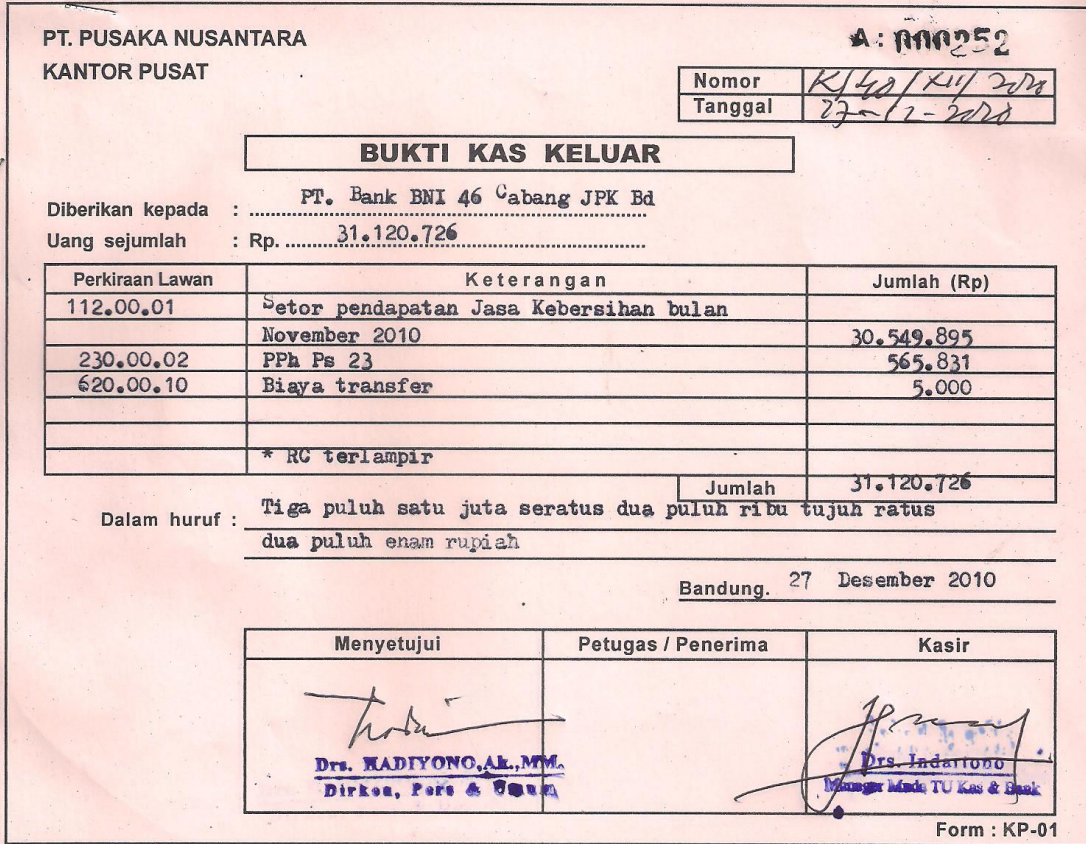 PT. PUSAKA NUSANTARA
KANTOR PUSAT
A : 000252
Nomor K/40/XII/2010
Tanggal 27-12-2010
BUKTI KAS KELUAR
Diberikan kepada : PT. Bank BNI 46 Cabang JPK Bd
Uang sejumlah : Rp. 31.120.726
Perkiraan Lawan Keterangan Jumlah (Rp)
112.00.01 Setor pendapatan Jasa Kebersihan bulan
November 2010 30.549.895
230.00.02 PPh Ps 23 565.831
620.00.10 Biaya transfer 5.000
* RC terlampir
Jumlah 31.120.726
Dalam huruf : Tiga puluh satu juta seratus dua puluh ribu tujuh ratus
dua puluh enam rupiah
Bandung. 27 Desember 2010
Menyetujui Petugas / Penerima Kasir
Drs. Indartono
Drs. HADIYONO,Ak.,MM.
Dirkeu, Pers & Umum
Manager Madya TU Kas & Bank
Form : KP-01